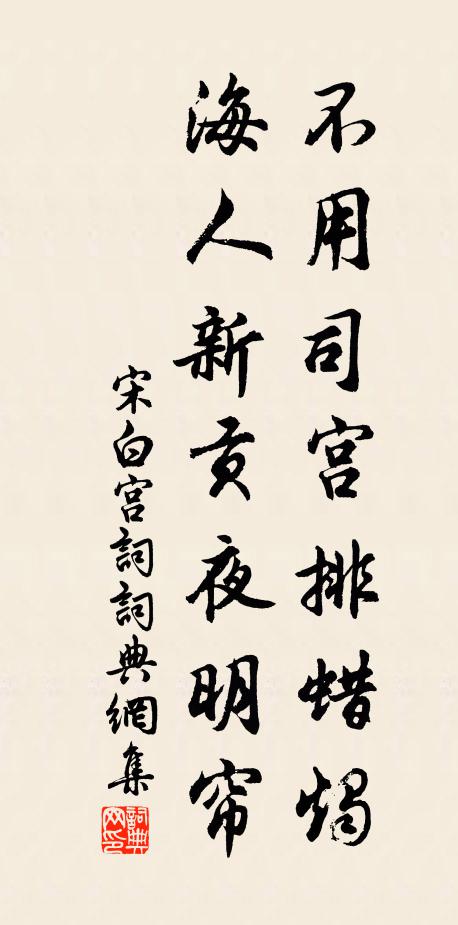 不用司宫排蜡烛
海人新贡夜明帘
宋白宫詞詞典網集
詞典網印